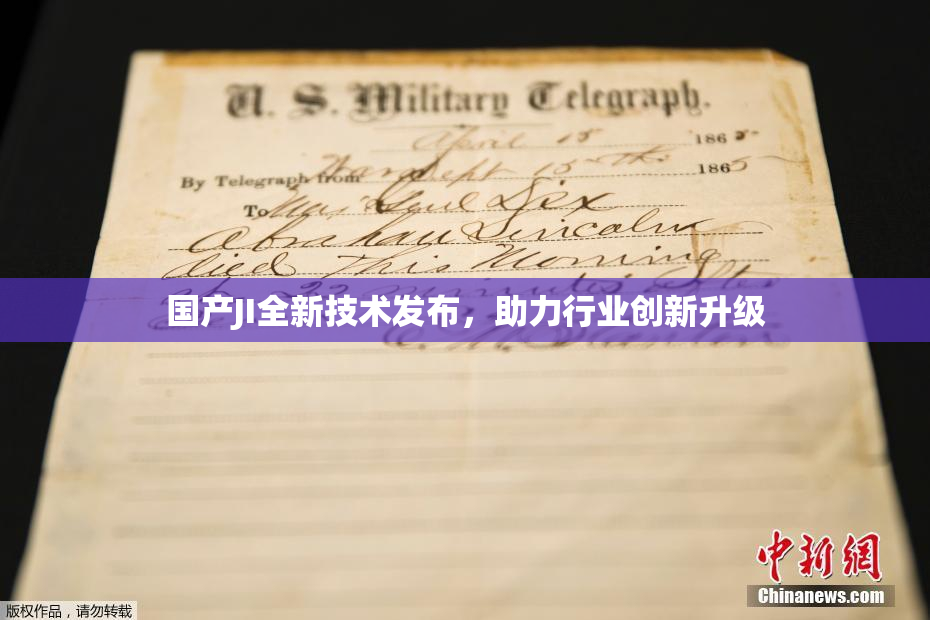 U. S. Military Telegraph.
April 15 1865
By Telegraph from War Dept 15th 1865
To Maj Genl Dix
Abraham Lincoln
died This Morning
at 22 minutes after
国产JI全新技术发布，助力行业创新升级
E. M. Stanton
中新網
Chinanews.com
版权作品，请勿转载